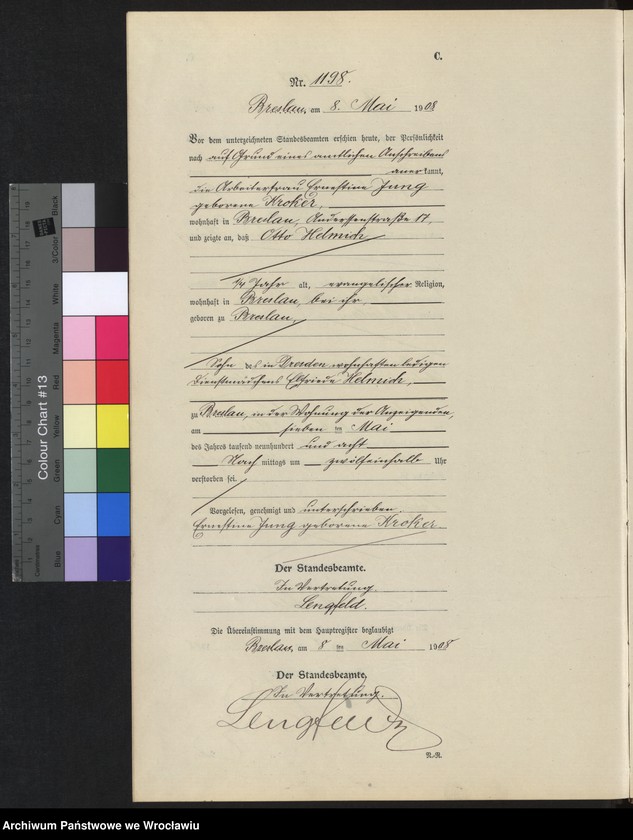 C.
Nr. 1198.
Breslau, am 8. Mai 1908
Vor dem unterzeichneten Standesbeamten erschien heute, der Persönlichkeit
nach auf Grund eines amtlichen Anschreibens
anerkannt,
die Arbeiterfrau Ernestine Jung
geborene Kroker,
wohnhaft in Breslau, Anderssenstraße 17,
und zeigte an, daß Otto Helmich
1/4 Jahr alt, evangelischer Religion,
wohnhaft in Breslau, bei ihr,
geboren zu Breslau,
Sohn des in Dresden wohnhaften ledigen
Dienstmädchens Elfriede Helmich,
zu Breslau, in der Wohnung der Anzeigenden,
am sieben ten Mai
des Jahres tausend neunhundert und acht
Nach mittags um zwölfeinhalb Uhr
verstorben sei.
Vorgelesen, genehmigt und unterschrieben.
Ernestine Jung geborene Kroker
Der Standesbeamte.
In Vertretung.
Lengfeld.
Die Übereinstimmung mit dem Hauptregister beglaubigt
Breslau, am 8 ten Mai 1908
Der Standesbeamte.
In Vertretung.
Lengfeld
N.-N.
Colour Chart #13
Blue
Cyan
Green
Yellow
Red
Magenta
White
3/Color
Black
Centimetres
Archiwum Państwowe we Wrocławiu